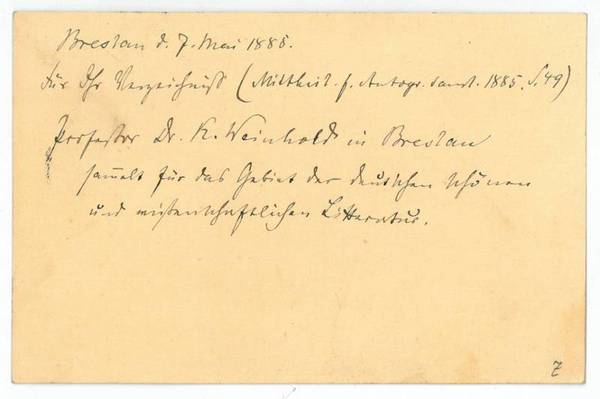 Breslau d. 7. Mai 1885.
Für Ihr Verzeichniß (Mittheil. f. Autogr. Samml. 1885. S. 49)
Professor Dr. K. Weinhold in Breslau
sammelt für das Gebiet der deutschen schönen
und wissenschaftlichen Litteratur.
7